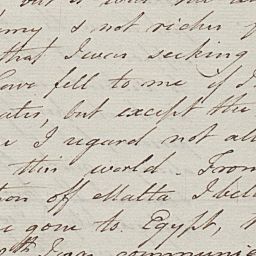 but it was not
my s not riches
that I was seeking
have fell to me of
, but except the
I regard not all
this world. From
tion off Malta I bel
gone to Egypt,
th Jan communi